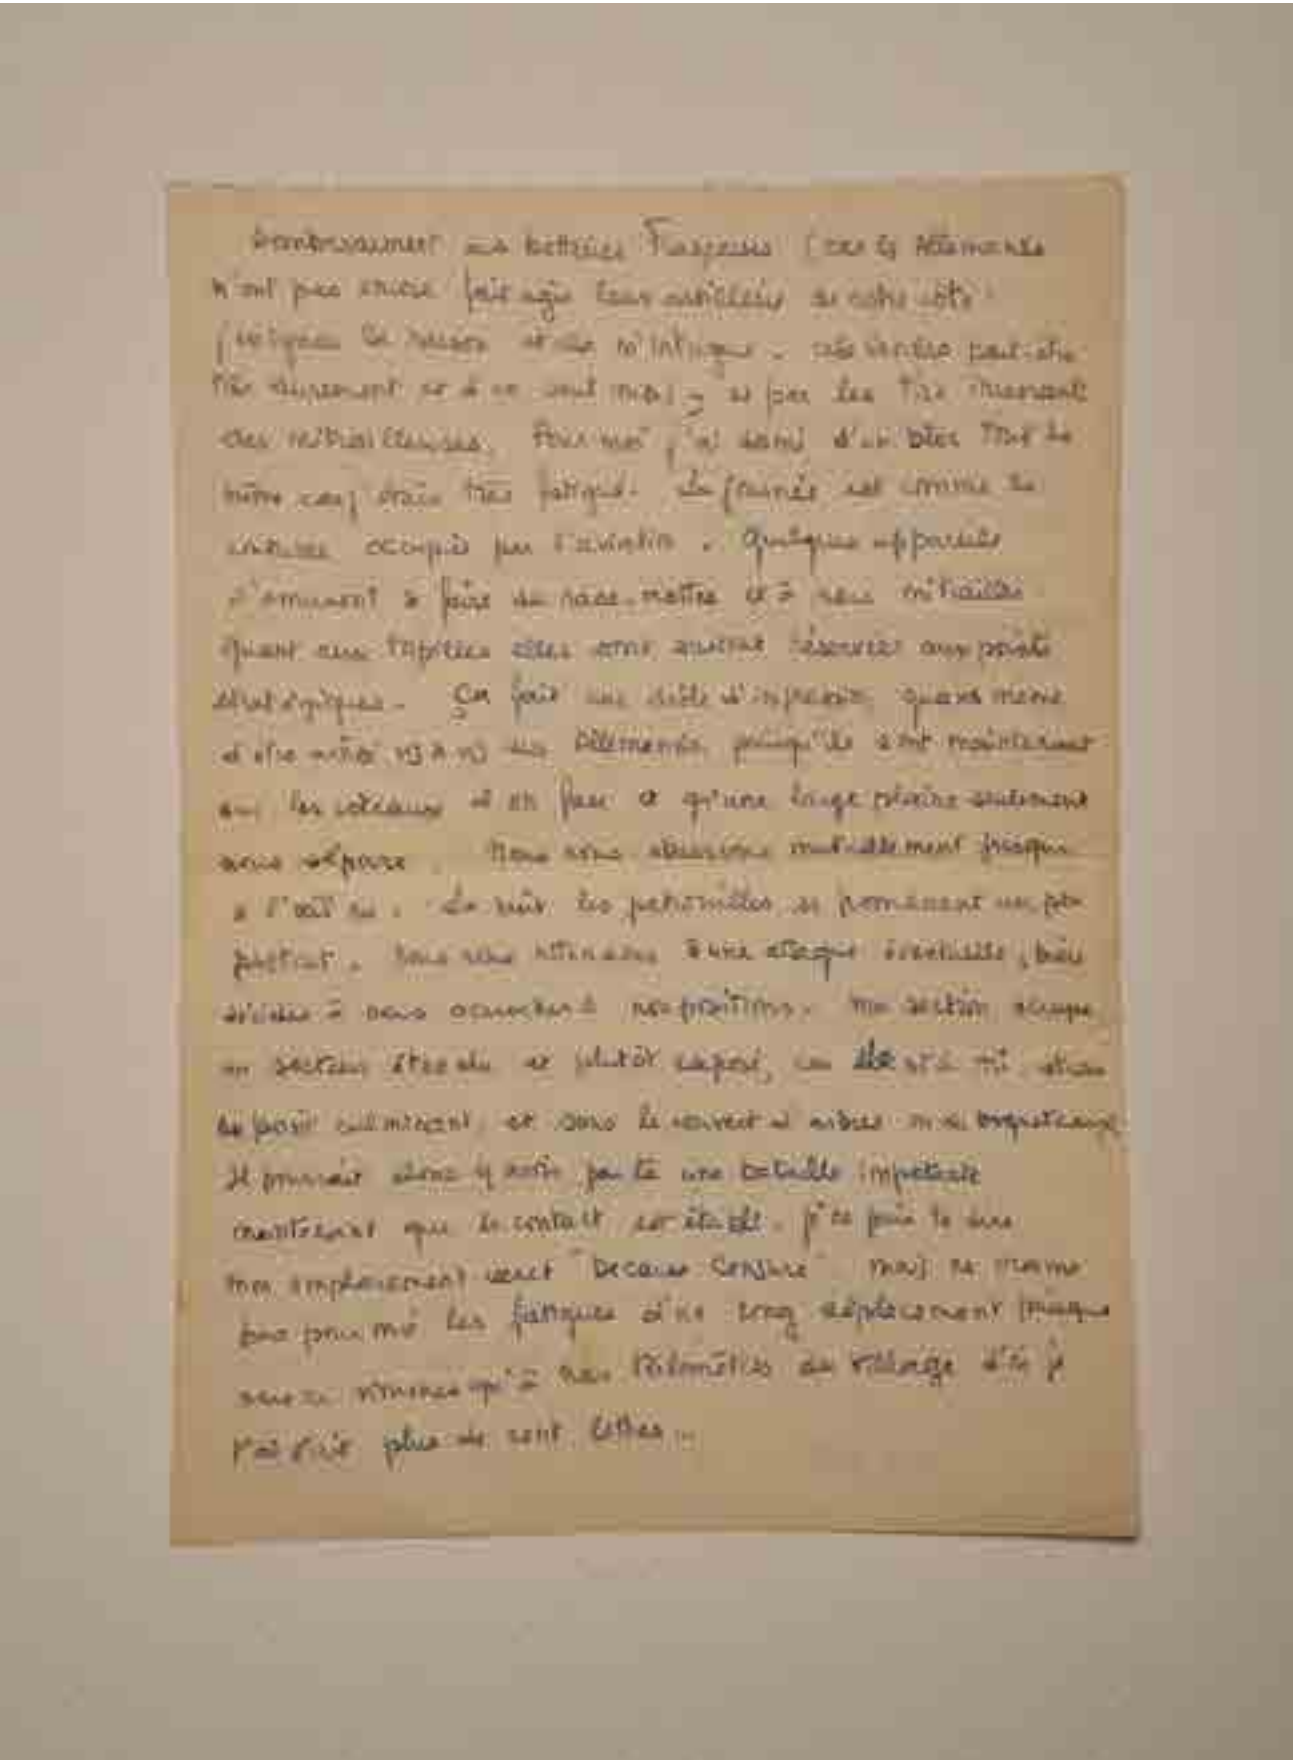 bombardement des batteries Françaises (car les Allemands
n'ont pas encore fait agir leur artillerie de notre côté
j'ignore la raison et cela m'intrigue. cela viendra peut-être
très durement et à ce seul par les tirs
des mitrailleuses. Pour moi, j'ai dormi d'un bloc tout de
même car j'étais très fatigué. La journée est comme de
coutume occupée par l'aviation. Quelques appareils
s'amusent à faire du rase-mottes et à nous mitrailler
Quant aux torpilles elles sont surtout réservées aux points
stratégiques. Ça fait une drôle d'impression quand même
d'être des Allemands, puisqu'ils sont maintenant
sur les coteaux d'en face et qu'une large plaine seulement
nous sépare. Nous nous observons mutuellement presque
à l'œil nu. La nuit les patrouilles se promènent un peu
partout. Nous nous attendons à une attaque éventuelle, bien
décidés à nous accrocher à nos positions. Ma section occupe
un secteur étendu et plutôt exposé, car
le point culminant, et sous le couvert d'arbres
Il pourrait donc y avoir par là une bataille importante
maintenant que le contact est établi. je ne puis te dire
mon emplacement exact "because censure" mais ne
pas pour moi les fatigues d'un long déplacement puisque
nous ne sommes qu'à trois kilomètres du village d'où je
t'ai écrit plus de cent lettres...